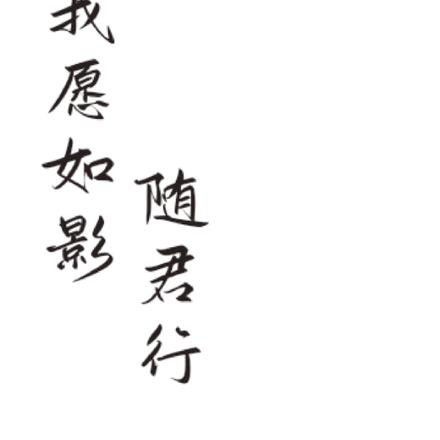 我愿如影
随君行